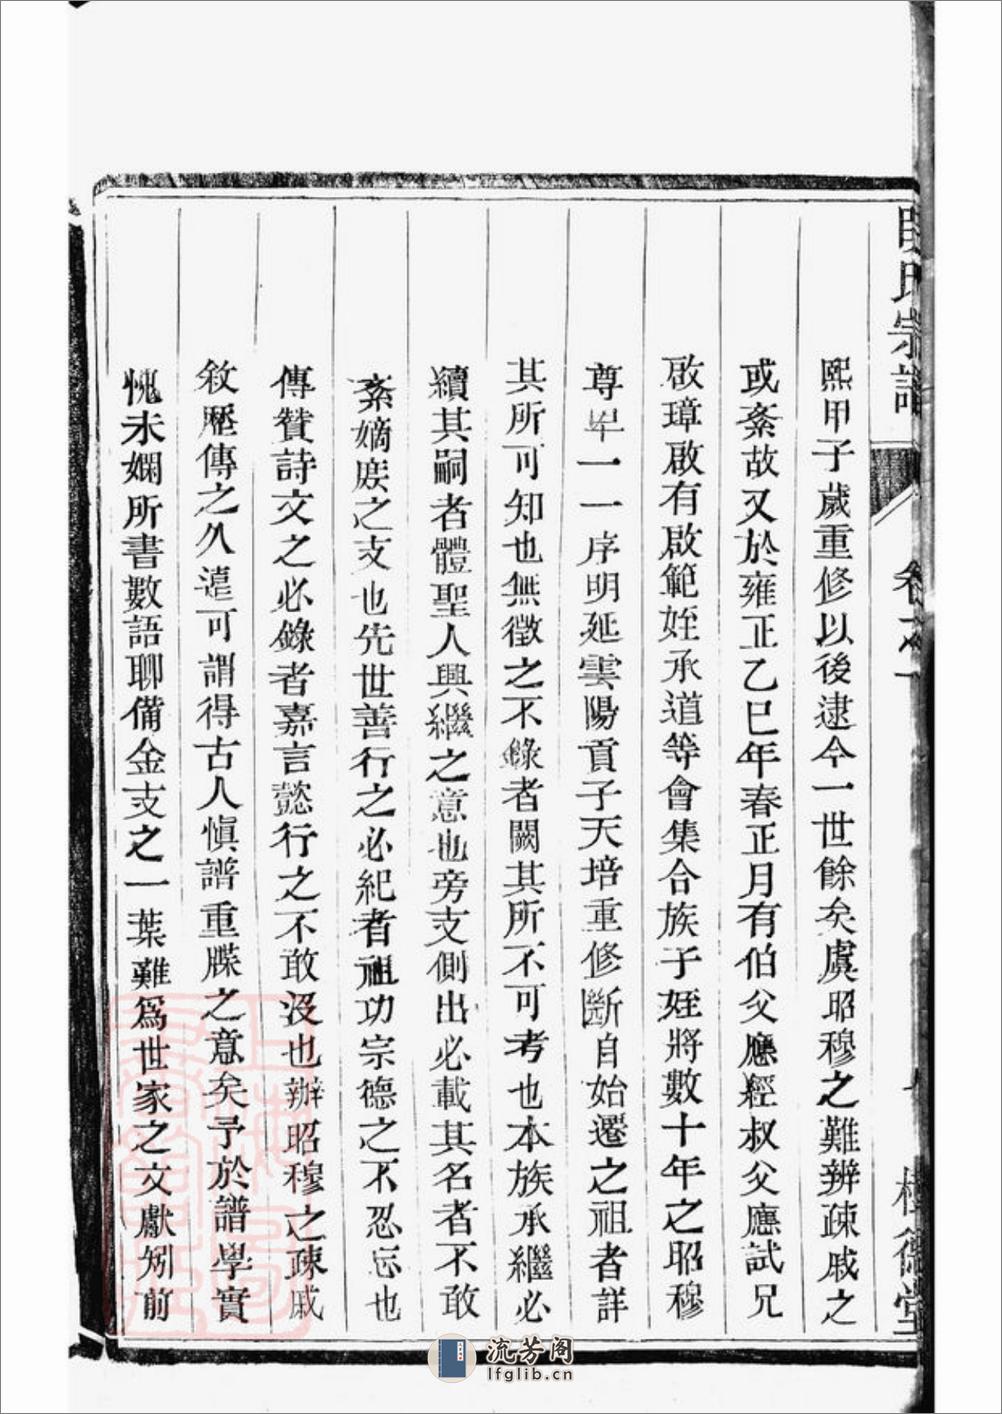 氏宗譜
卷之一
八
德堂
熙甲子歲重修以後逮今一世餘矣虞昭穆之難辨疎戚之
或紊故又於雍正乙巳年春正月有伯父應經叔父應試兄
啟璋啟有啟範姪承道等會集合族子姪將數十年之昭穆
尊卑一一序明延雲陽貢子天培重修斷自始遷之祖者詳
其所可知也無徵之不錄者闕其所不可考也本族承繼必
續其嗣者體聖人興繼之意也旁支側出必載其名者不敢
紊嫡庻之支也先世善行之必紀者祖功宗德之不忍忘也
傳贊詩文之必錄者嘉言懿行之不敢沒也辦昭穆之疎戚
敘歷傳之久遠可謂得古人愼譜重牒之意矣予於譜學實
愧未嫻所書數語聊備金支之一葉難為世家之文獻矧前
流芳阁
lfglib.cn